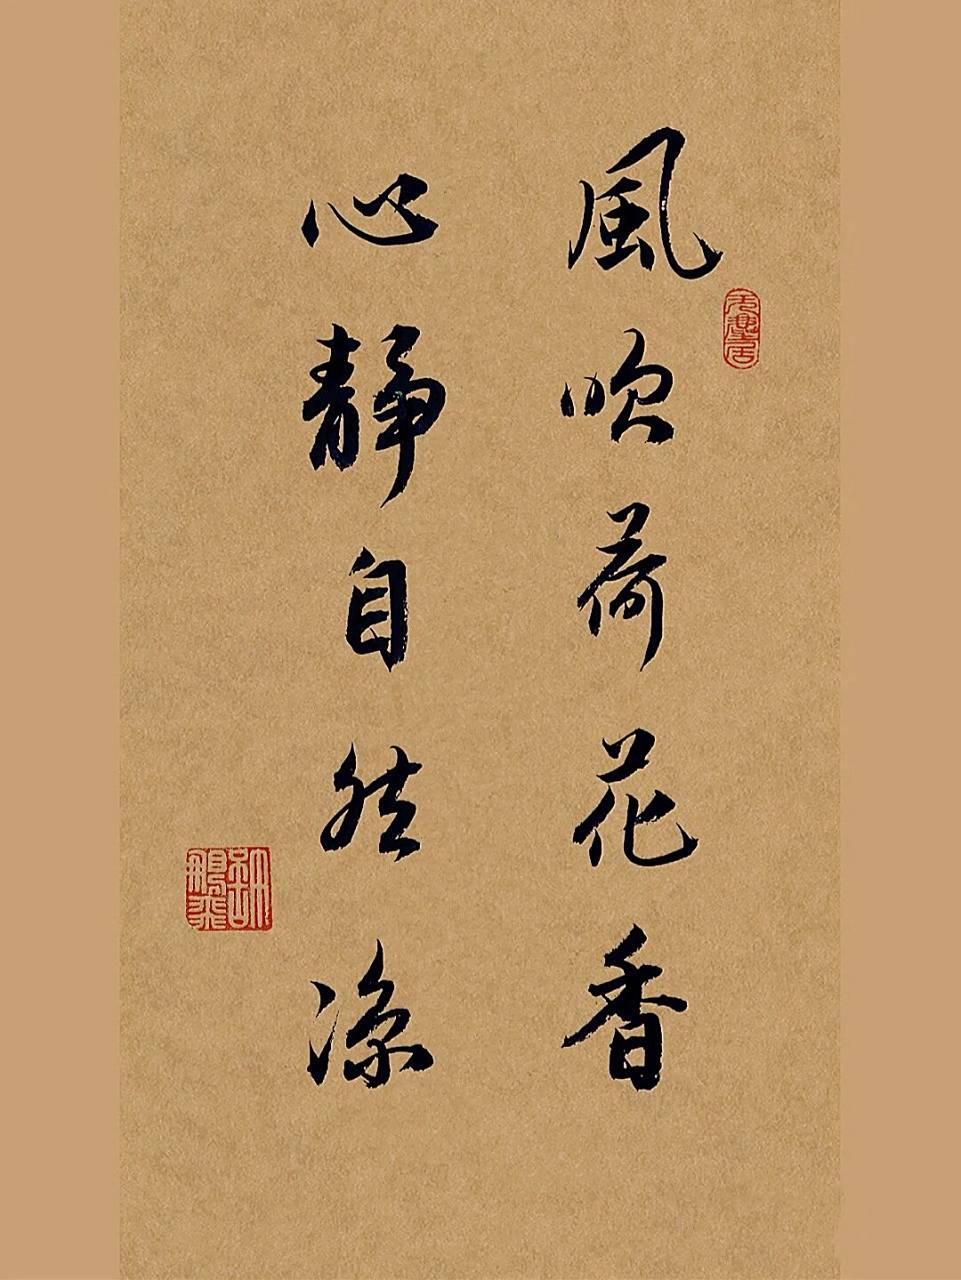 風吹荷花香
心靜自然涼